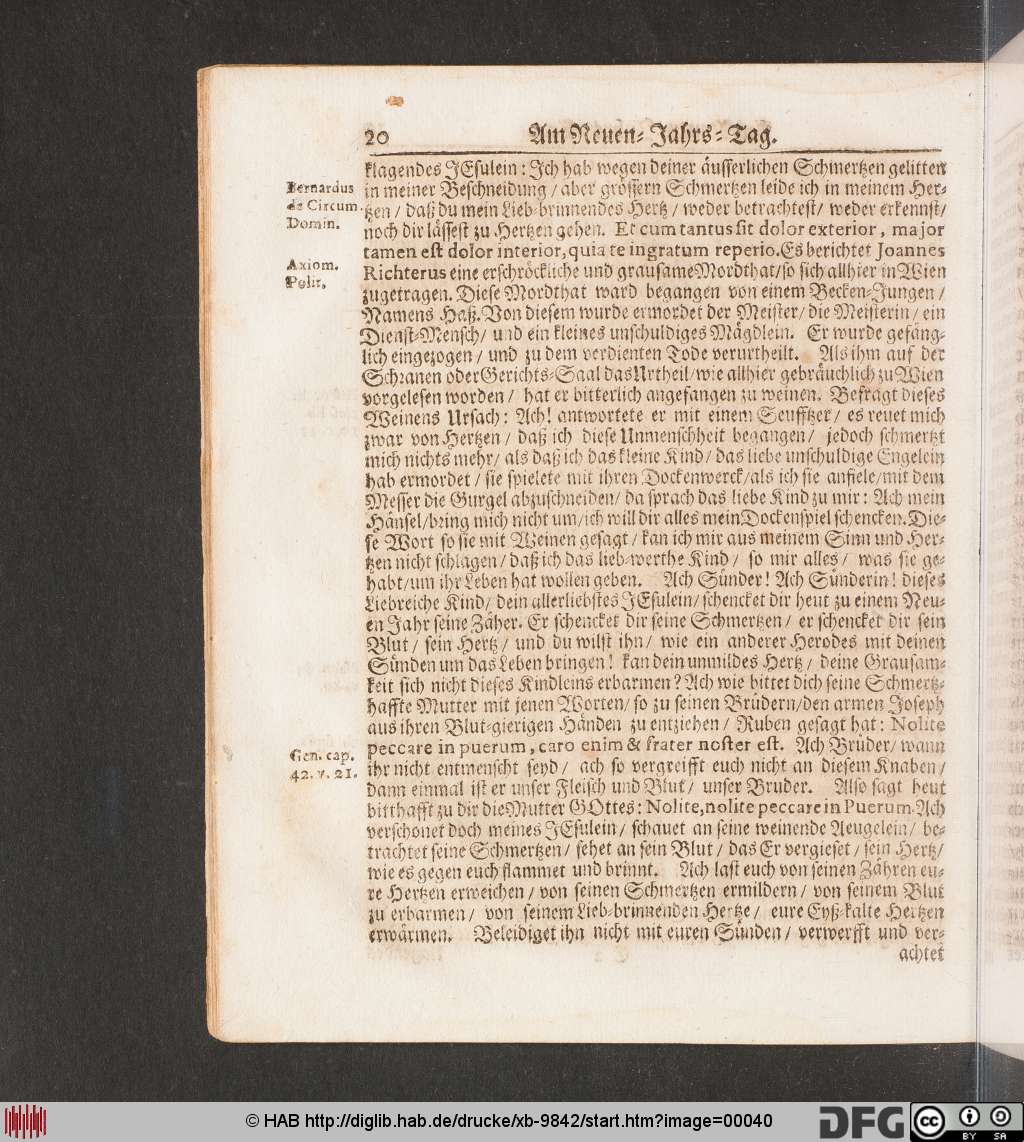 20 Am Neuen-Jahrs-Tag.
klagendes JEsulein: Ich hab wegen deiner äusserlichen Schmertzen gelitten
Bernardus
de Circum.
Domin.
in meiner Beschneidung / aber grössern Schmertzen leide ich in meinem Her-
tzen / daß du mein Lieb-brinnendes Hertz / weder betrachtest / weder erkennst /
noch dir lässest zu Hertzen gehen. Et cum tantus sit dolor exterior, major
tamen est dolor interior, quia te ingratum reperio. Es berichtet Joannes
Axiom.
Polit.
Richterus eine erschröckliche und grausame Mordthat / so sich allhier in Wien
zugetragen. Diese Mordthat ward begangen von einem Becken-Jungen /
Namens Haß. Von diesem wurde ermordet der Meister / die Meisterin / ein
Dienst-Mensch / und ein kleines unschuldiges Mägdlein. Er wurde gefäng-
lich eingezogen / und zu dem verdienten Tode verurtheilt. Als ihm auf der
Schranen oder Gerichts-Saal das Urtheil / wie allhier gebräuchlich zu Wien
vorgelesen worden / hat er bitterlich angefangen zu weinen. Befragt dieses
Weinens Ursach: Ach! antwortete er mit einem Seufftzer / es reuet mich
zwar von Hertzen / daß ich diese Unmenschheit begangen / jedoch schmertzt
mich nichts mehr / als daß ich das kleine Kind / das liebe unschuldige Engelein
hab ermordet / sie spielete mit ihren Dockenwerck / als ich sie anfiele / mit dem
Messer die Gurgel abzuschneiden / da sprach das liebe Kind zu mir: Ach mein
Hänsel / bring mich nicht um / ich will dir alles mein Dockenspiel schencken. Die-
se Wort so sie mit Weinen gesagt / kan ich mir aus meinem Sinn und Her-
tzen nicht schlagen / daß ich das lieb-werthe Kind / so mir alles / was sie ge-
habt / um ihr Leben hat wollen geben. Ach Sünder! Ach Sünderin! dieses
Liebreiche Kind / dein allerliebstes JEsulein / schencket dir heut zu einem Neu-
en Jahr seine Zäher. Er schencket dir seine Schmertzen / er schencket dir sein
Blut / sein Hertz / und du wilst ihn / wie ein anderer Herodes mit deinen
Sünden um das Leben bringen! kan dein unmildes Hertz / deine Grausam-
keit sich nicht dieses Kindleins erbarmen? Ach wie bittet dich seine Schmertz-
haffte Mutter mit jenen Worten / so zu seinen Brüdern / den armen Joseph
aus ihren Blut-gierigen Händen zu entziehen / Ruben gesagt hat: Nolite
Gen. cap.
42. v. 21.
peccare in puerum, caro enim & frater noster est. Ach Brüder / wann
ihr nicht entmenscht seyd / ach so vergreifft euch nicht an diesem Knaben /
dann einmal ist er unser Fleisch und Blut / unser Bruder. Also sagt heut
bitthafft zu dir die Mutter GOttes: Nolite, nolite peccare in Puerum. Ach
verschonet doch meines JEsulein / schauet an seine weinende Aeugelein / be-
trachtet seine Schmertzen / sehet an sein Blut / das Er vergieset / sein Hertz /
wie es gegen euch flammet und brinnt. Ach last euch von seinen Zähren eu-
re Hertzen erweichen / von seinen Schmertzen ermildern / von seinem Blut
zu erbarmen / von seinem Lieb-brinnenden Hertze / eure Eyß-kalte Hertzen
erwärmen. Beleidiget ihn nicht mit euren Sünden / verwerfft und ver-
achtet
© HAB http://diglib.hab.de/drucke/xb-9842/start.htm?image=00040
DFG
cc
BY SA